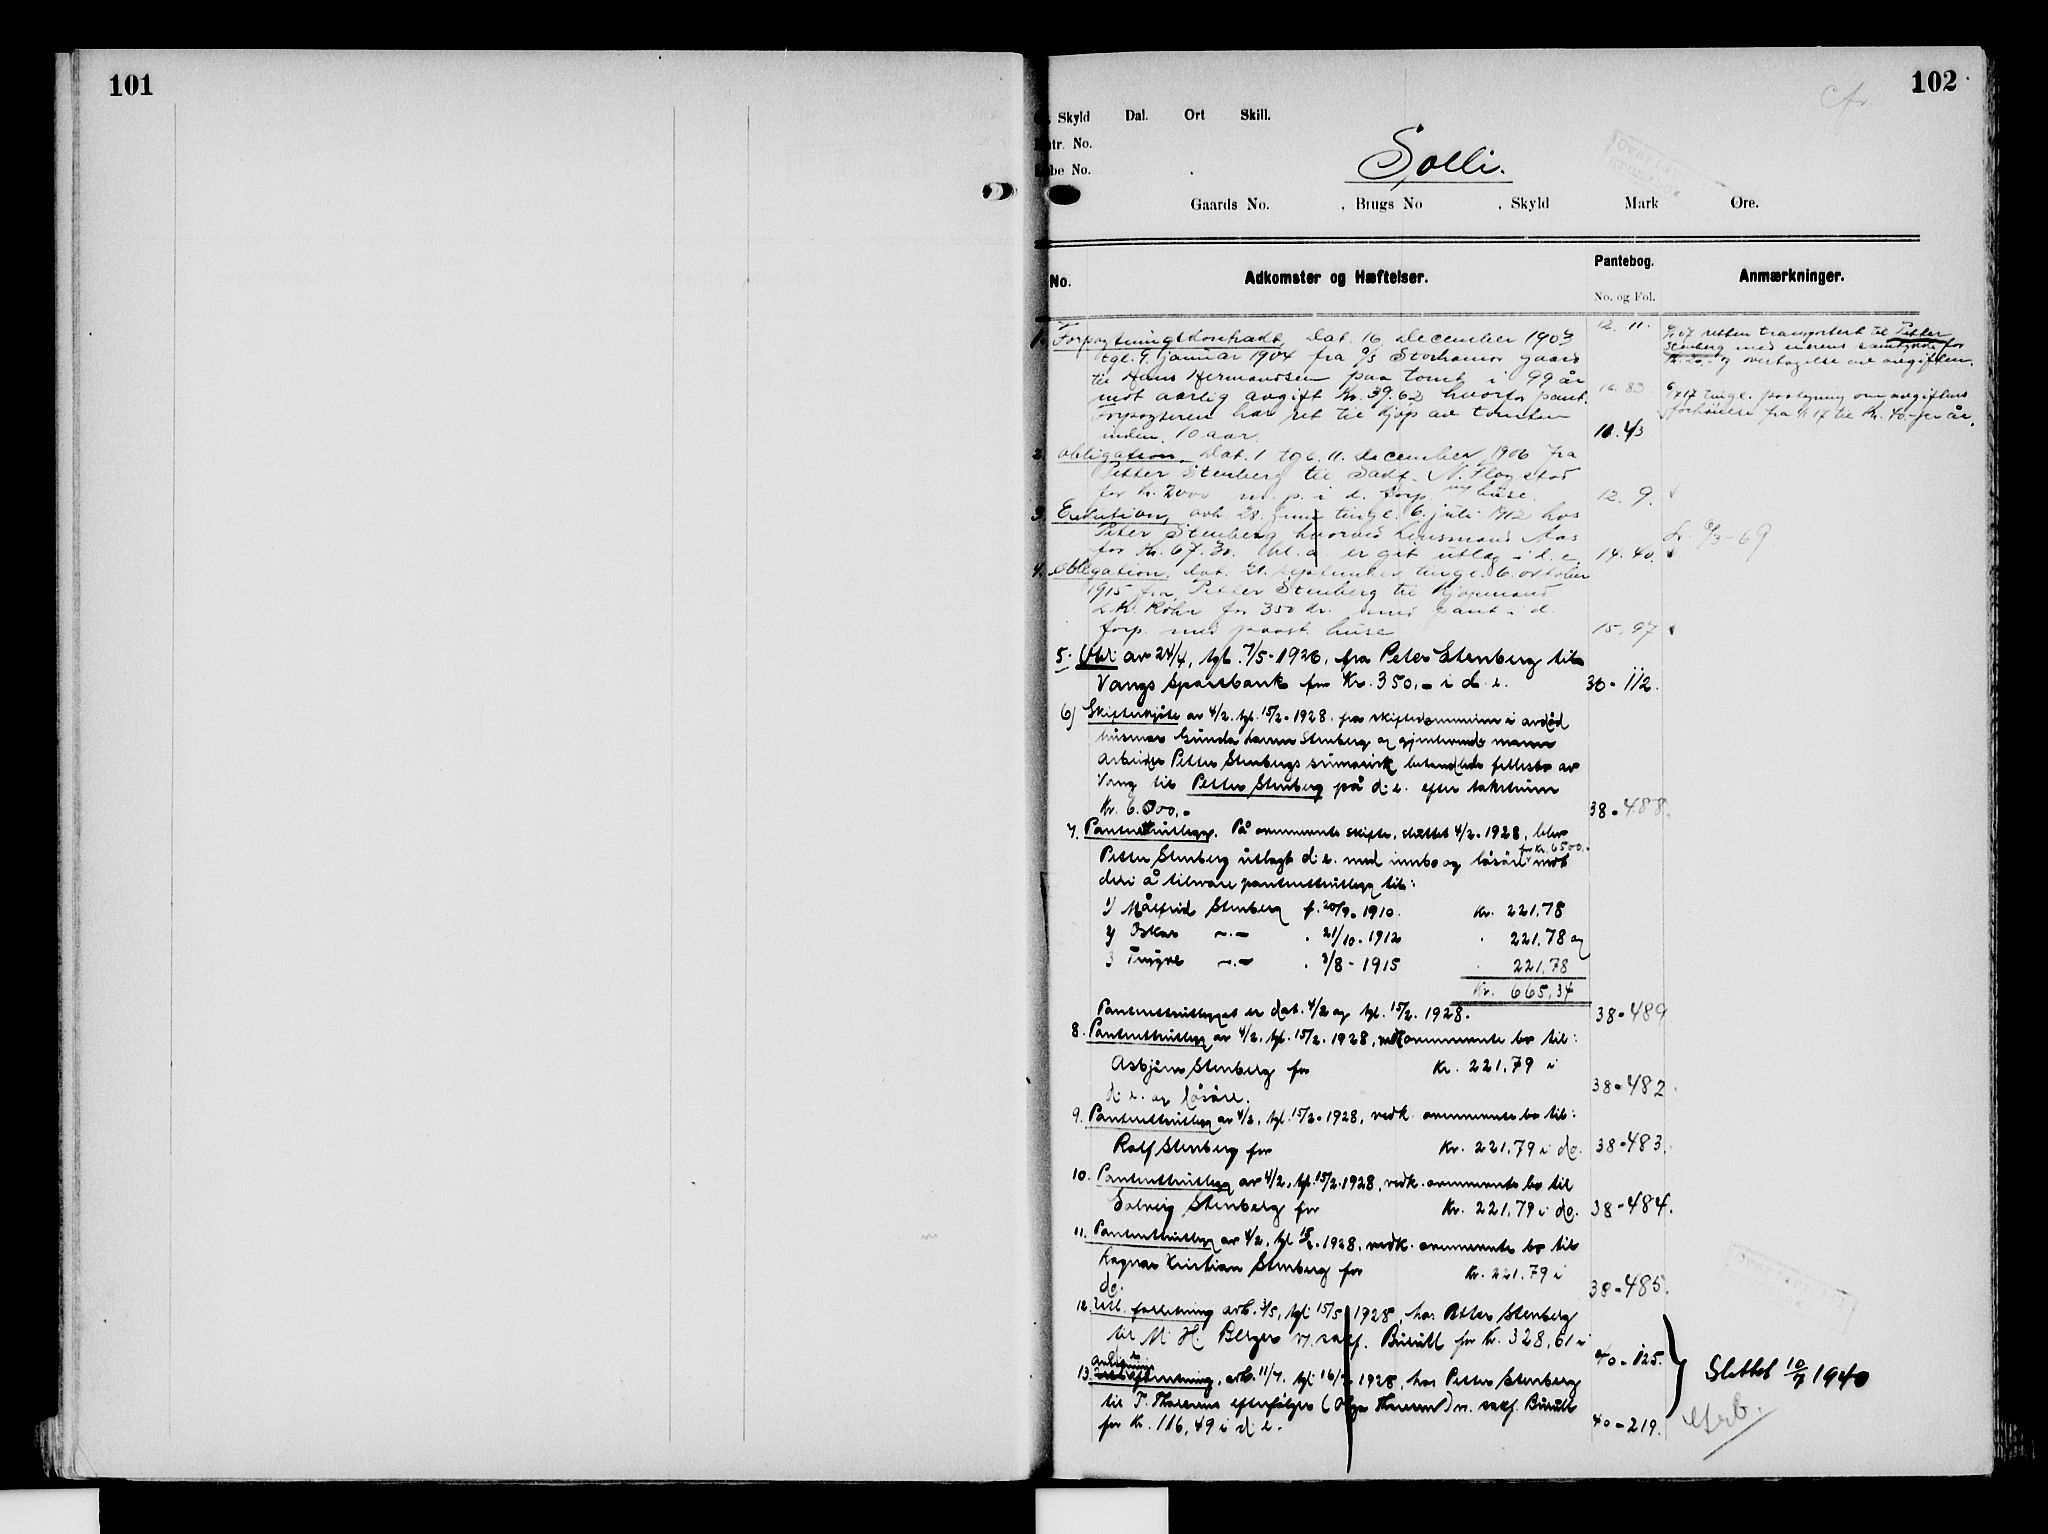 101
102
Skyld Dal. Ort Skill.
tr. No.
be No.
Solli.
Gaards No. , Brugs No , Skyld Mark Øre.
No. Adkomster og Hæftelser. Pantebog. Anmærkninger.
No. og Fol.
1. Forpagtningskontrakt, dat. 16 december 1903 12. 11.
tgl. 9. januar 1904 fra Storhamar gaard
til Hans Hermandsen paa tomt i 99 år
mot aarlig avgift Kr. 39.62 hvorfor pant.
Forpagteren har ret til kjøp av tomten
inden 10 aar.
retten transportert til Petter
Stenberg med eierens samtykke for
og overtagelse av avgiften.
16. 83. tingl. paategning om avgiftens
forhøielse fra 17 til Kr. 40 per år.
2. Obligation, dat. 1 tgl. 11. december 1906 fra
Petter Stenberg til Sakf. N. Flagstad
for Kr. 2000 m. p. i d. forp. huse. 12. 9.
3. Exekution, avh 28. juni tingl. 6. juli 1912 hos
Peter Stenberg hvorved Lensmand Aas
for Kr. 67.30 er git utlæg i d. e. 14. 40.
4. Obligation, dat. 21. september tingl. 6. oktober
1915 fra Petter Stenberg til Kjøpmand
Røhr for 350 kr. med pant i d.
forp. med paast. huse 15. 97
5. Obl. av 24/4, tgl. 7/5-1926, fra Peter Stenberg til
Vangs Sparebank for Kr. 350.- i d. e. 36-112.
6) Skifteskjøte av 4/2. tgl. 15/2-1928. fra skiftekommisjon i avdød
husmor Gunda Stenberg og gjenlevende mann
arbeider Petter Stenbergs summarisk behandlede fellesbo av
Vang til Petter Stenberg på d. e. efter takstsum
Kr. 6.500.- 38-488.
7. Panterettsutlegg. På ovennevnte skifte, sluttet 4/2-1928, blev
Petter Stenberg utlagt d. e. med innbo og løsøre for Kr. 6500.- mot
deri å tilsvare panterettsutlegg til:
1) Målfrid Stenberg f. 20/9. 1910. Kr. 221,78
2) Oskar -.- . 21/10. 1912 . 221,78 og
3 Trygve -.- . 3/8-1915 . 221,78
Kr. 665,34
Panterettsutlegget er dat. 4/2 og tgl. 15/2. 1928. 38-489
8. Panterettsutlegg av 4/2, tgl. 15/2. 1928, vedk. ovennevnte bo til:
Asbjørn Stenberg for Kr. 221,79 i
d. e. og løsøre. 38-482.
9. Panterettsutlegg av 4/2, tgl. 15/2-1928, vedk. ovennevnte bo til:
Rolf Stenberg for Kr. 221,79 i do. 38-483.
10. Panterettsutlegg av 4/2. tgl. 15/2.1928, vedk. ovennevnte bo til
Solveig Stenberg for Kr. 221,79 i do. 38-484.
11. Panterettsutlegg av 4/2, tgl 15/2.1928, vedk. ovennevnte bo til
Ragnar Kristian Stenberg for Kr. 221,79 i
do. 38-485.
12. Utl. forretning avh. 3/5, tgl. 15/5 1928, hos Petter Stenberg
til M. H. Berger v. sakf. Bisitt for Kr. 328,61 i 40-125.
13. forretning, avh. 11/7. tgl. 16/7. 1928, hos Petter Stenberg
til T. Thoresens efterfølger (Olga Thoresen) v. sakf. Bisitt
for Kr. 116,49 i d. e. 40-219.
Slettet 10/7 1940